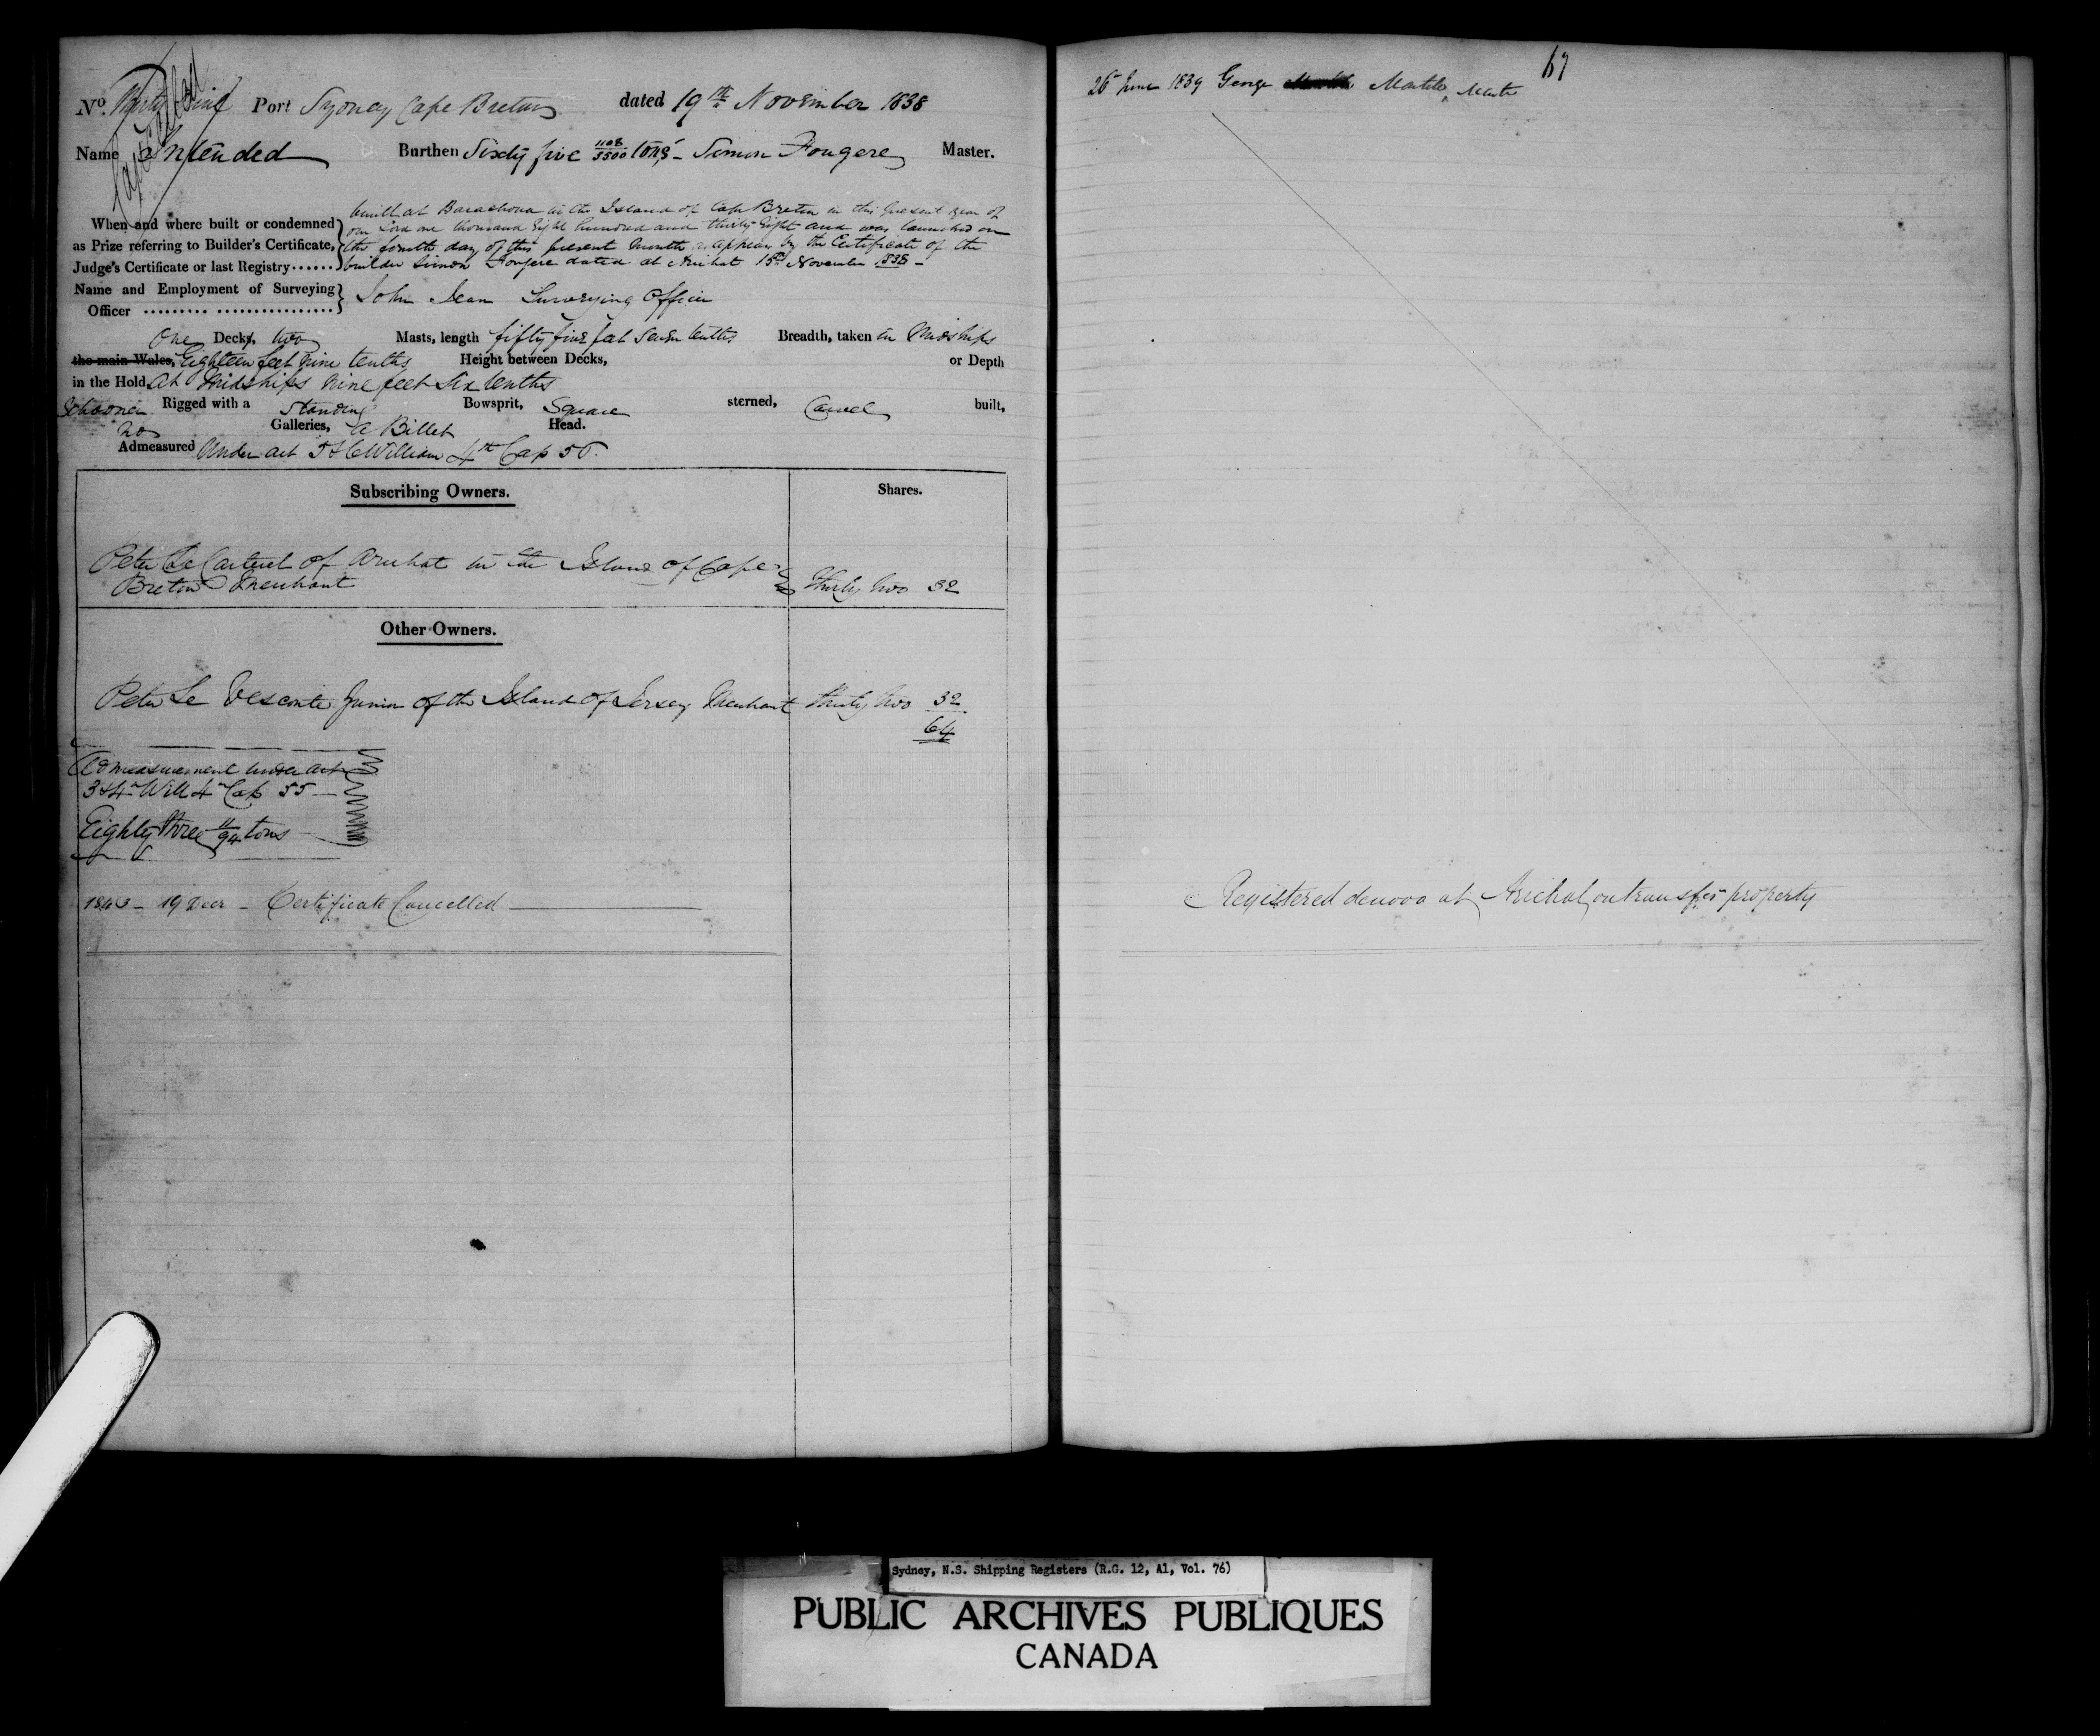 Cancelled
No. Thirty Nine Port Sydney Cape Breton dated 19th November 1838
Name Intended Burthen Sixty five 1108/3500 tons - Simon Fougere Master.
built at Barachoua in the Island of Cape Breton in this present year of
When and where built or condemned our Lord one thousand Eight hundred and thirty Eight and was launched on
as Prize referring to Builder's Certificate, the fourth day of this present month as appears by the Certificate of the
Judge's Certificate or last Registry...... builder Simon Fougere dated at Arichat 15th November 1838 -
Name and Employment of Surveying
Officer ......... ................ John Jean Surveying Officer
One Decks, two Masts, length fifty five feet Seven tenths Breadth, taken in Midships
the main Wales, Eighteen feet Nine tenths Height between Decks, or Depth
in the Hold at Midships Nine feet Six tenths
Schooner Rigged with a Standing Bowsprit, Square sterned, Carvel built,
no Galleries, a Billet Head.
Admeasured Under act 5 & 6 William 4th Cap 56.
Subscribing Owners. Shares.
Peter Le of Arichat in the Island of Cape
Breton Merchant Thirty two 32
Other Owners.
Peter Le Vesconte Junior of the Island of Jersey Merchant thirty two 32
64
Admeasurement under act
3 & 4 Will 4 Cap 55
Eighty three 11/94 tons
1843 - 19 Decr - Certificate Cancelled
67
26 June 1839 George Master
Registered denovo at Arichat on transfer property
Sydney, N.S. Shipping Registers (R.G. 12, A1, Vol. 76)
PUBLIC ARCHIVES PUBLIQUES
CANADA